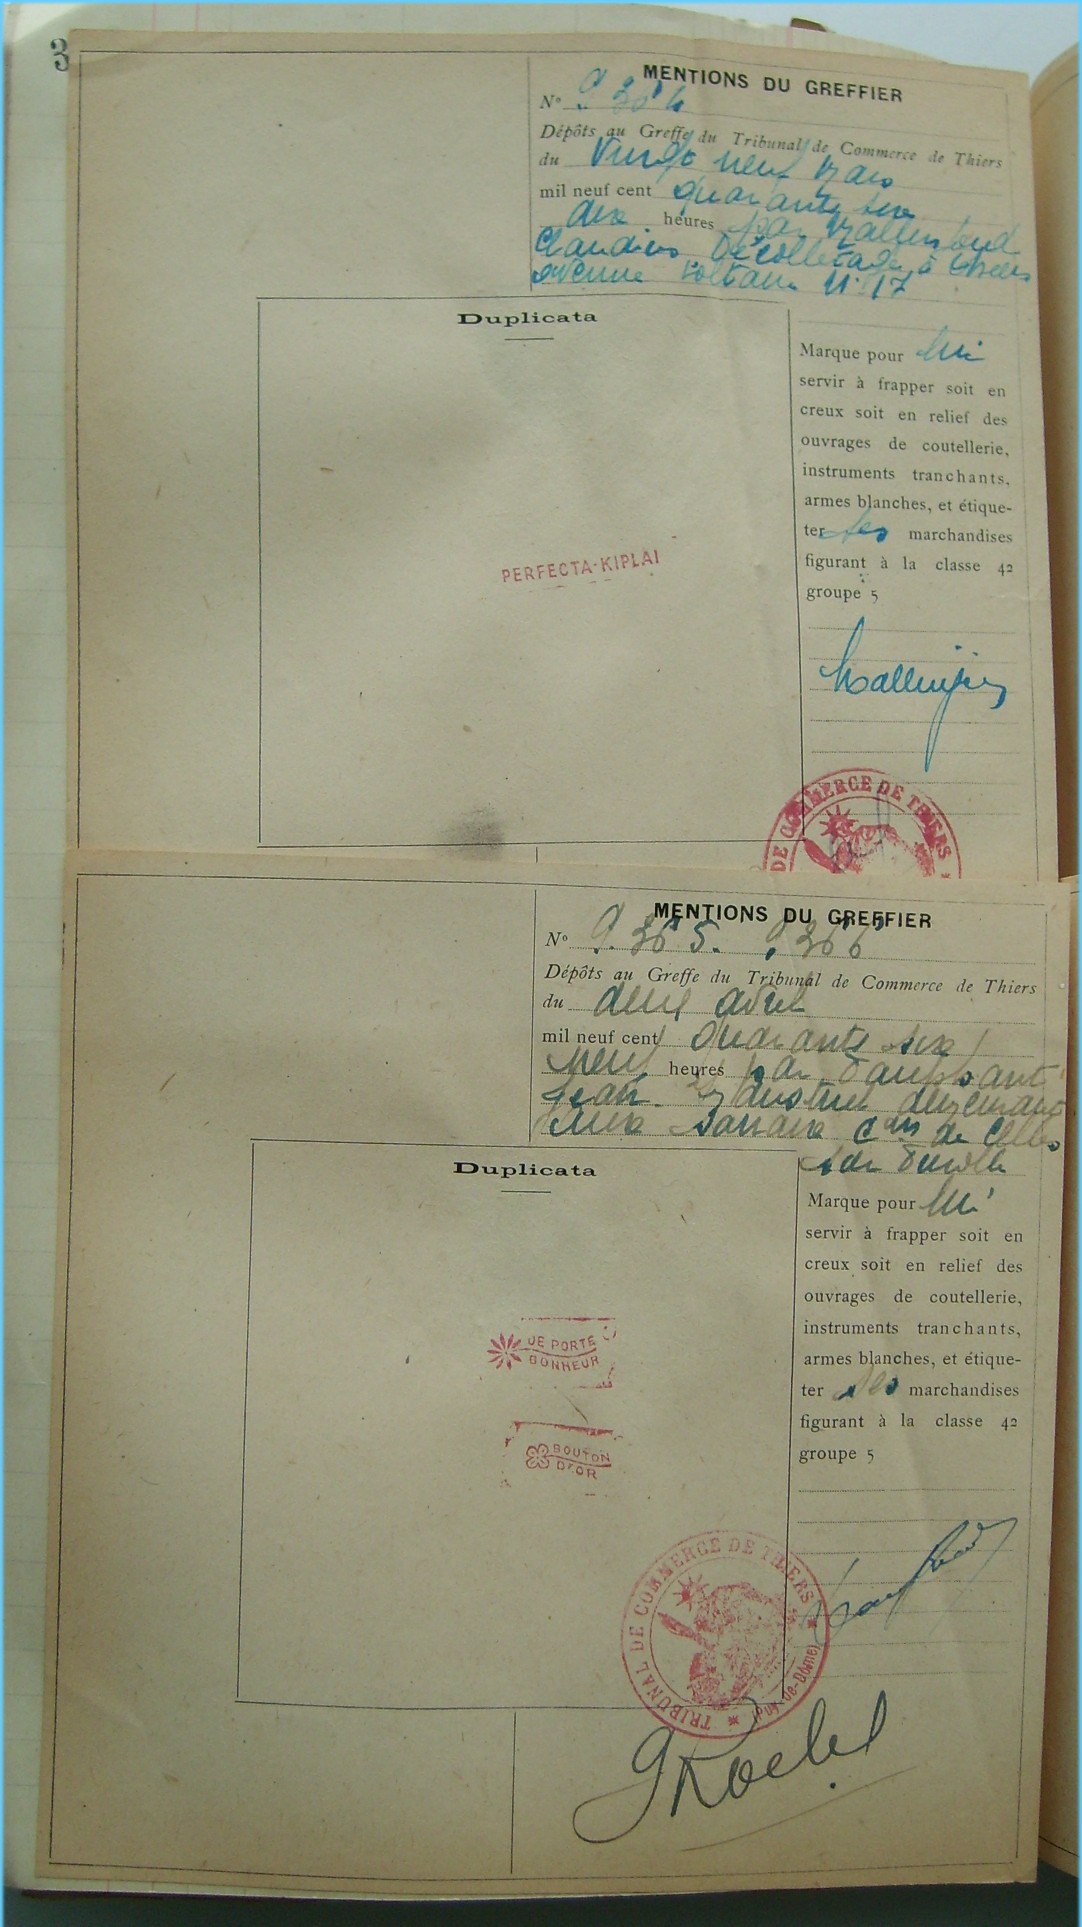 3
MENTIONS DU GREFFIER
N° 9.364
Dépôts au Greffe du Tribunal de Commerce de Thiers
du Vingt neuf Mars
mil neuf cent quarante six
dix heures par
Claudius Décolletage à Thiers
avenue Voltaire N° 17
Duplicata
Marque pour lui
servir à frapper soit en
creux soit en relief des
ouvrages de coutellerie,
instruments tranchants,
armes blanches, et étique-
ter ses marchandises
figurant à la classe 42
groupe 5
PERFECTA-KIPLAI
DE COMMERCE DE THIERS
MENTIONS DU GREFFIER
N° 9.365. 9366
Dépôts au Greffe du Tribunal de Commerce de Thiers
du deux avril
mil neuf cent quarante six
neuf heures par
Jean. demeurant
de Celles
sur Durolle
Duplicata
Marque pour lui
servir à frapper soit en
creux soit en relief des
ouvrages de coutellerie,
instruments tranchants,
armes blanches, et étique-
ter ses marchandises
figurant à la classe 42
groupe 5
JE PORTE
BONHEUR
BOUTON
D'OR
TRIBUNAL DE COMMERCE DE THIERS
(Puy-de-Dôme)